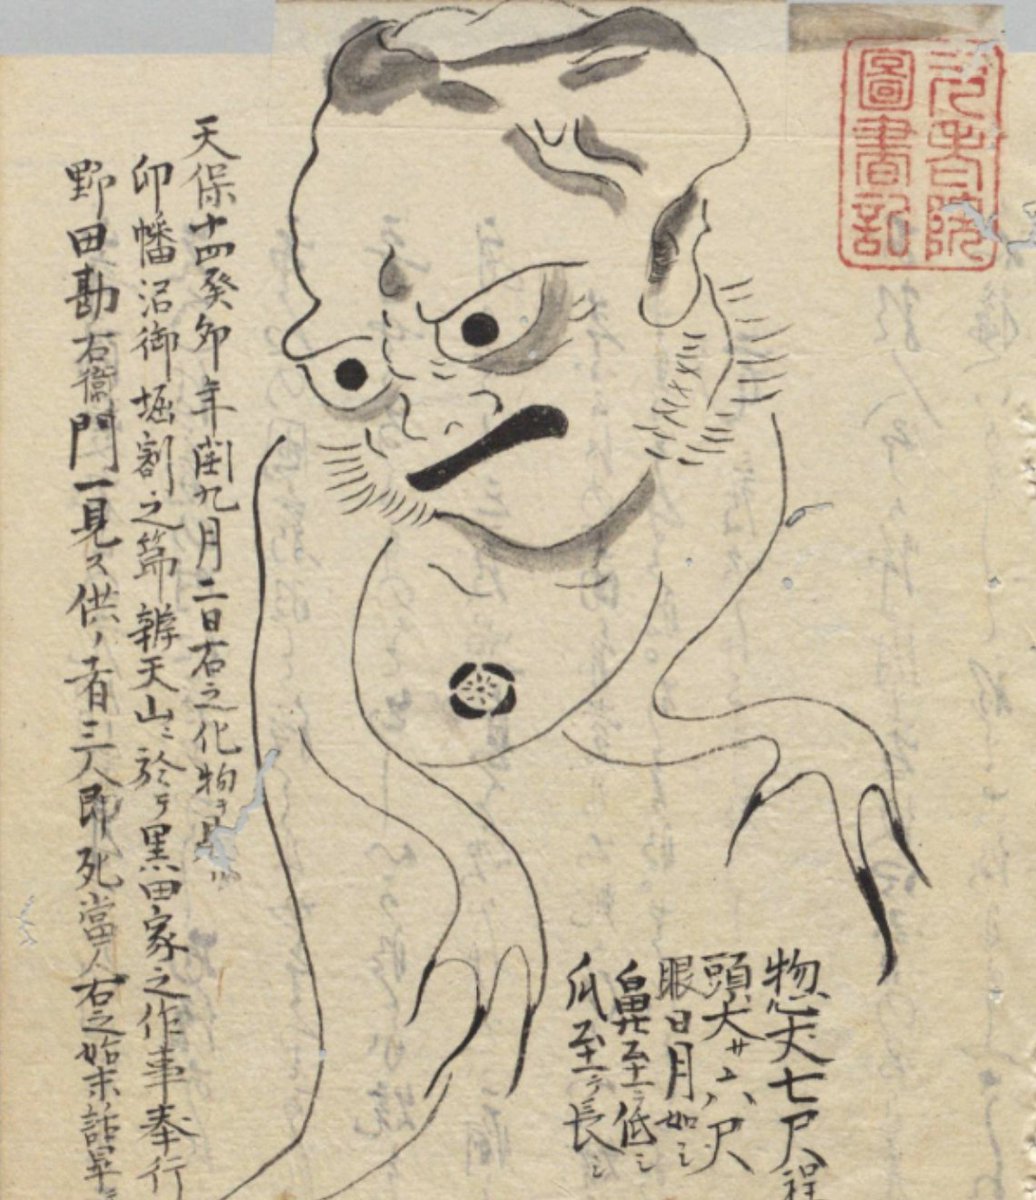 元老院
圖書記
惣丈七尺程
頭大サ六尺
眼日月如シ
鼻至テ低シ
爪至テ長シ
天保十四癸卯年閏九月二日右之化物ヲ見
印幡沼御堀割之節辨天山ニ於テ黒田家之作事奉行
野田勘右衞門一見ス供ノ者三人即死當人右之始末話畢